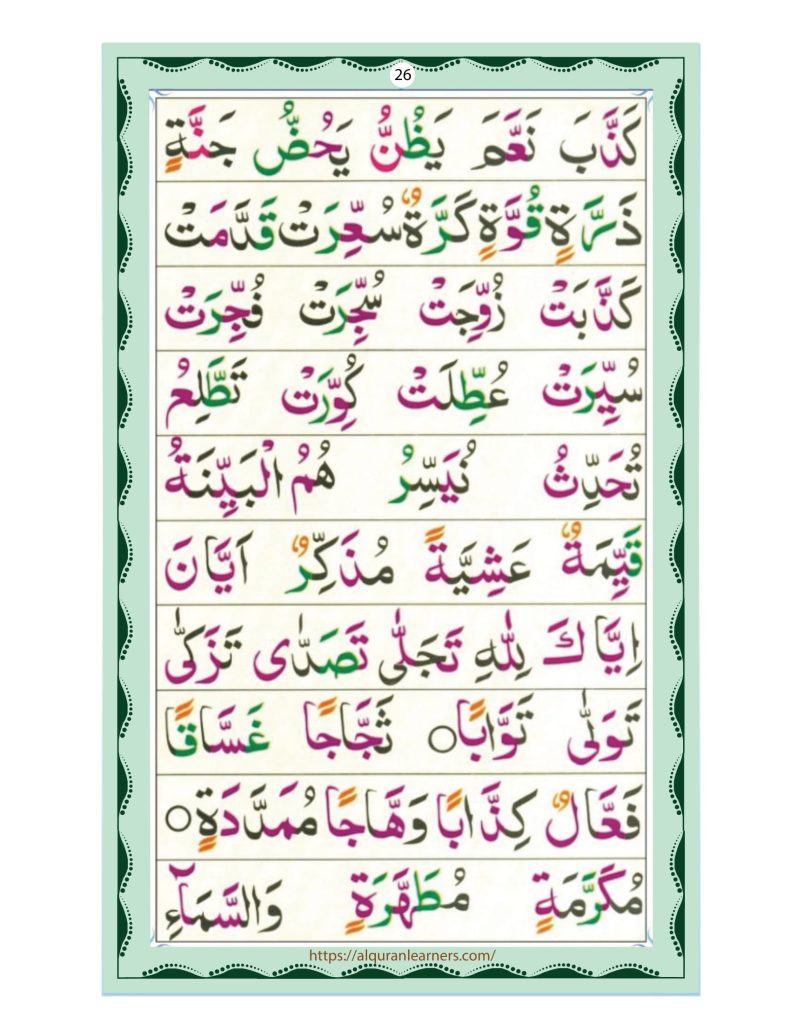 26
كَذَّبَ نَعَّمَ يَظُنُّ يَحُضُّ جَنَّةٍ
ذَرَّةٍ قُوَّةٍ كَرَّةٌ سُعِّرَتْ قَدَّمَتْ
كَذَّبَتْ زُوِّجَتْ سُجِّرَتْ فُجِّرَتْ
سُيِّرَتْ عُطِّلَتْ كُوِّرَتْ تَطَّلِعُ
تُحَدِّثُ نُيَسِّرُ هُمُ الْبَيِّنَةُ
قَيِّمَةٌ عَشِيَّةً مُذَكِّرٌ اَيَّانَ
اِيَّاكَ لِلّٰهِ تَجَلّٰى تَصَدّٰى تَزَكّٰى
تَوَلّٰى تَوَّابًا○ ثَجَّاجًا غَسَّاقًا
فَعَّالٌ كِذَّابًا وَهَّاجًا مُمَدَّدَةٍ○
مُكَرَّمَةٍ مُطَهَّرَةٍ وَالسَّمَآءِ
https://alquranlearners.com/